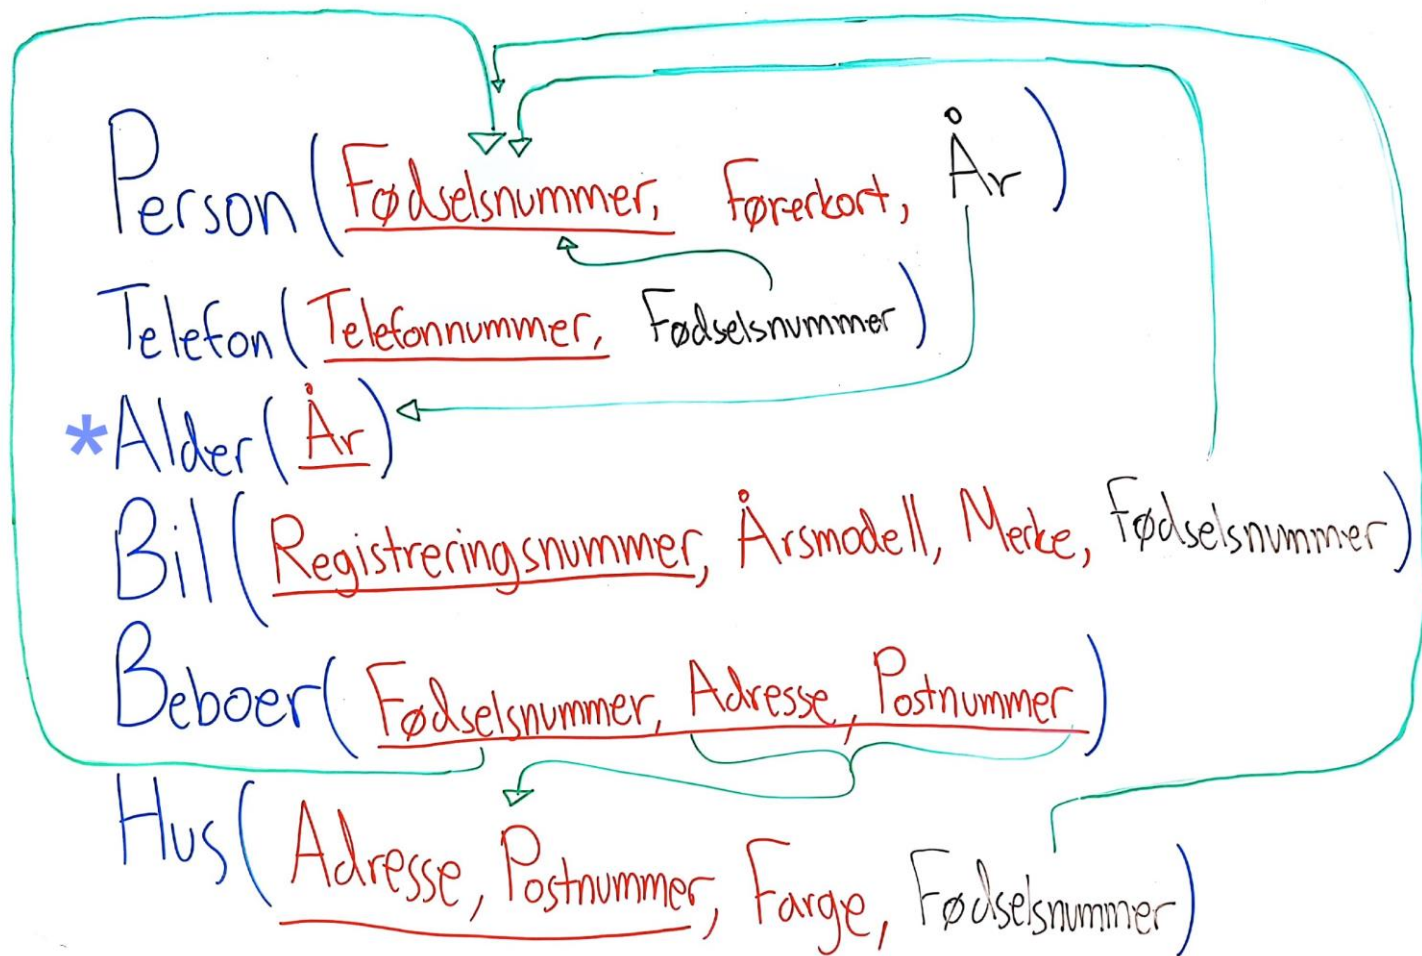 Person (Fødselsnummer, Førerkort, År)
Telefon (Telefonnummer, Fødselsnummer)
*Alder (År)
Bil (Registreringsnummer, Årsmodell, Merke, Fødselsnummer)
Beboer (Fødselsnummer, Adresse, Postnummer)
Hus (Adresse, Postnummer, Farge, Fødselsnummer)